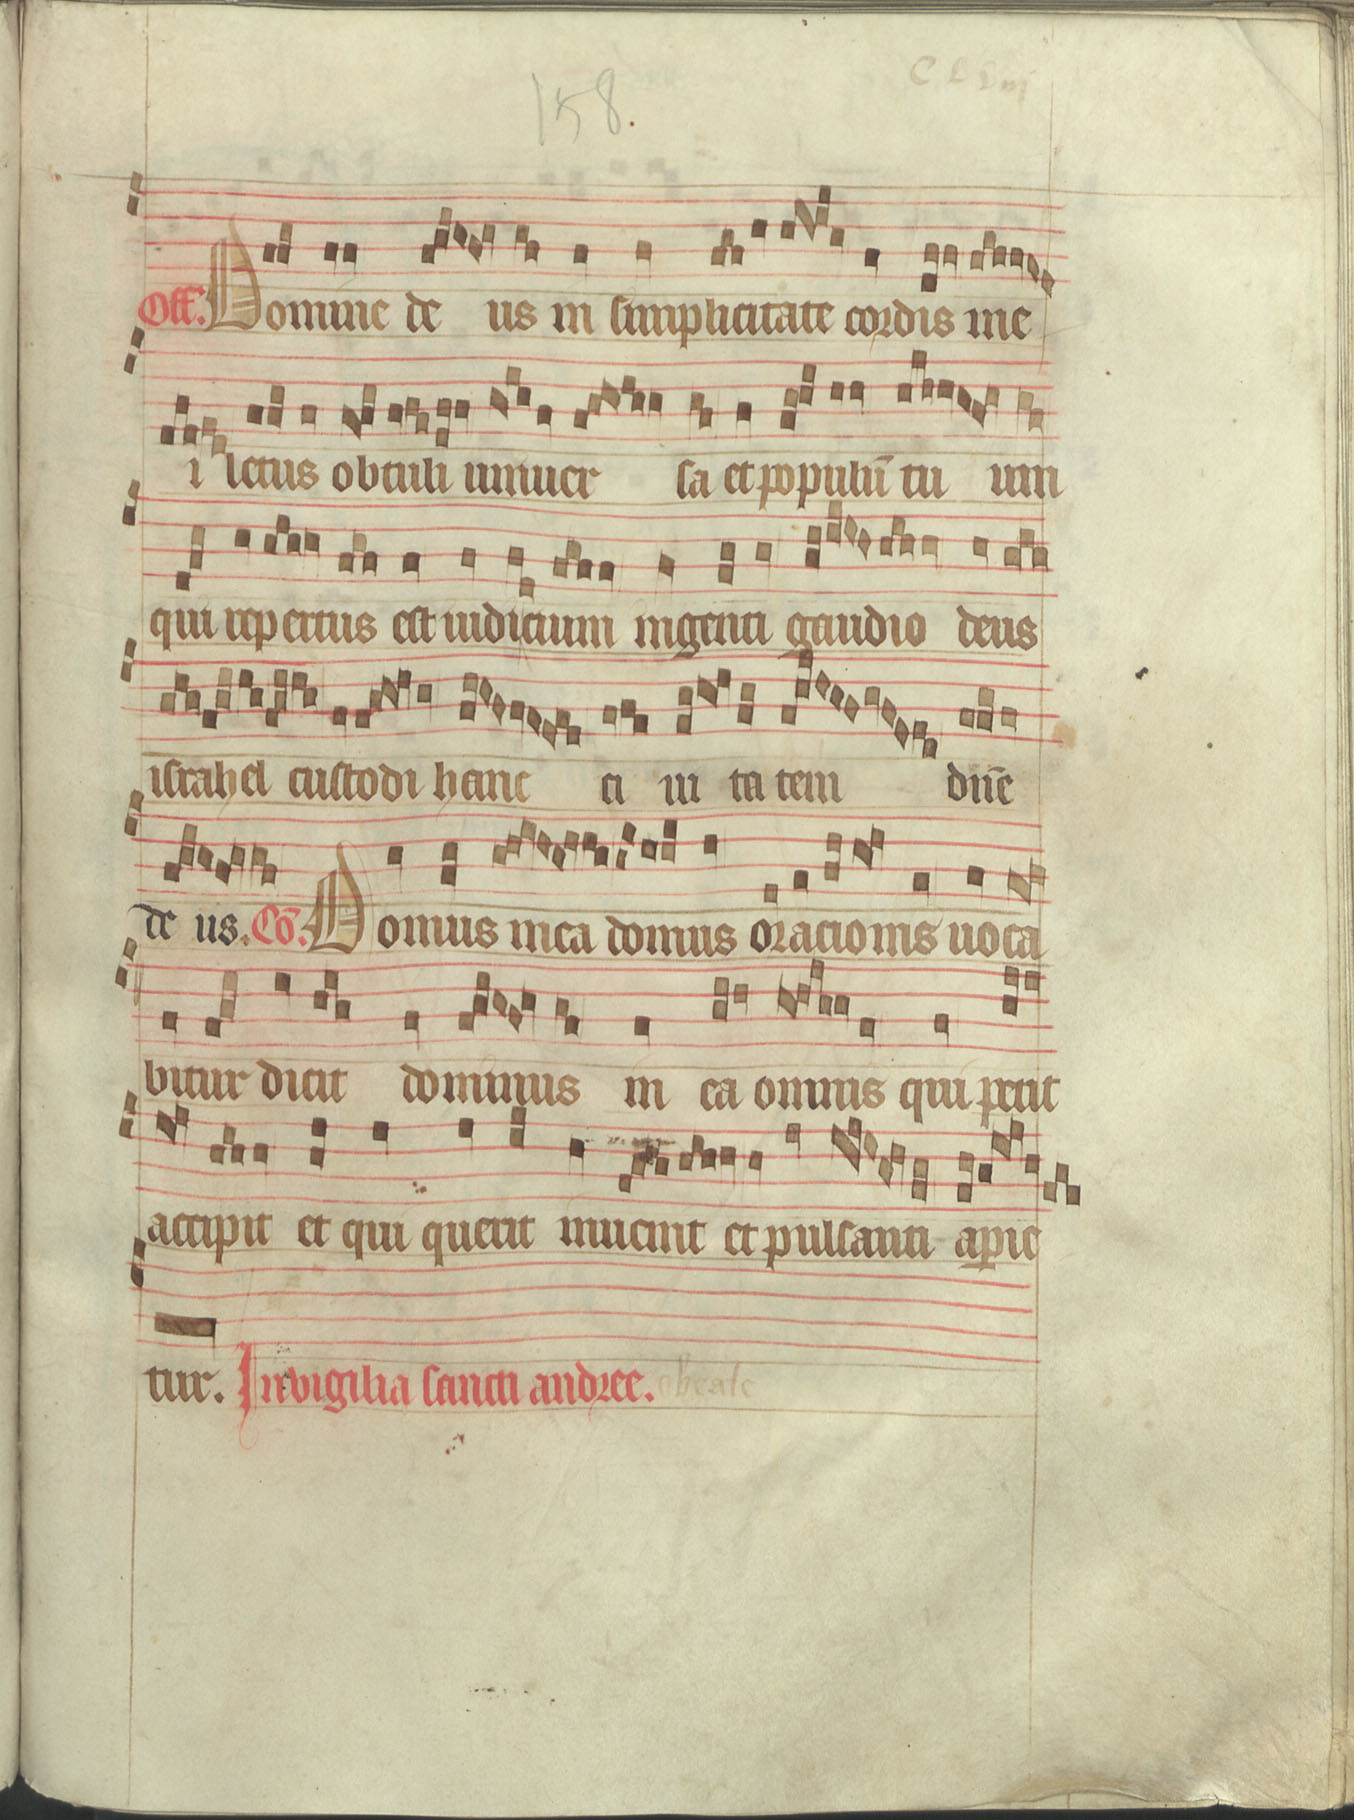 C L Lviij
158.
Off. Domine de us in simplicitate cordis me
i letus obtuli uniuer sa et populū tu um
qui repertus est iudicium ingenti gaudio deus
israhel custodi hanc ci ui ta tem dñe
de us. Cō. Domus mea domus orationis uoca
bitur dicit dominus in ea omnis qui petit
accipit et qui querit inuenit et pulsanti apie
tur. In vigilia sancti andree.